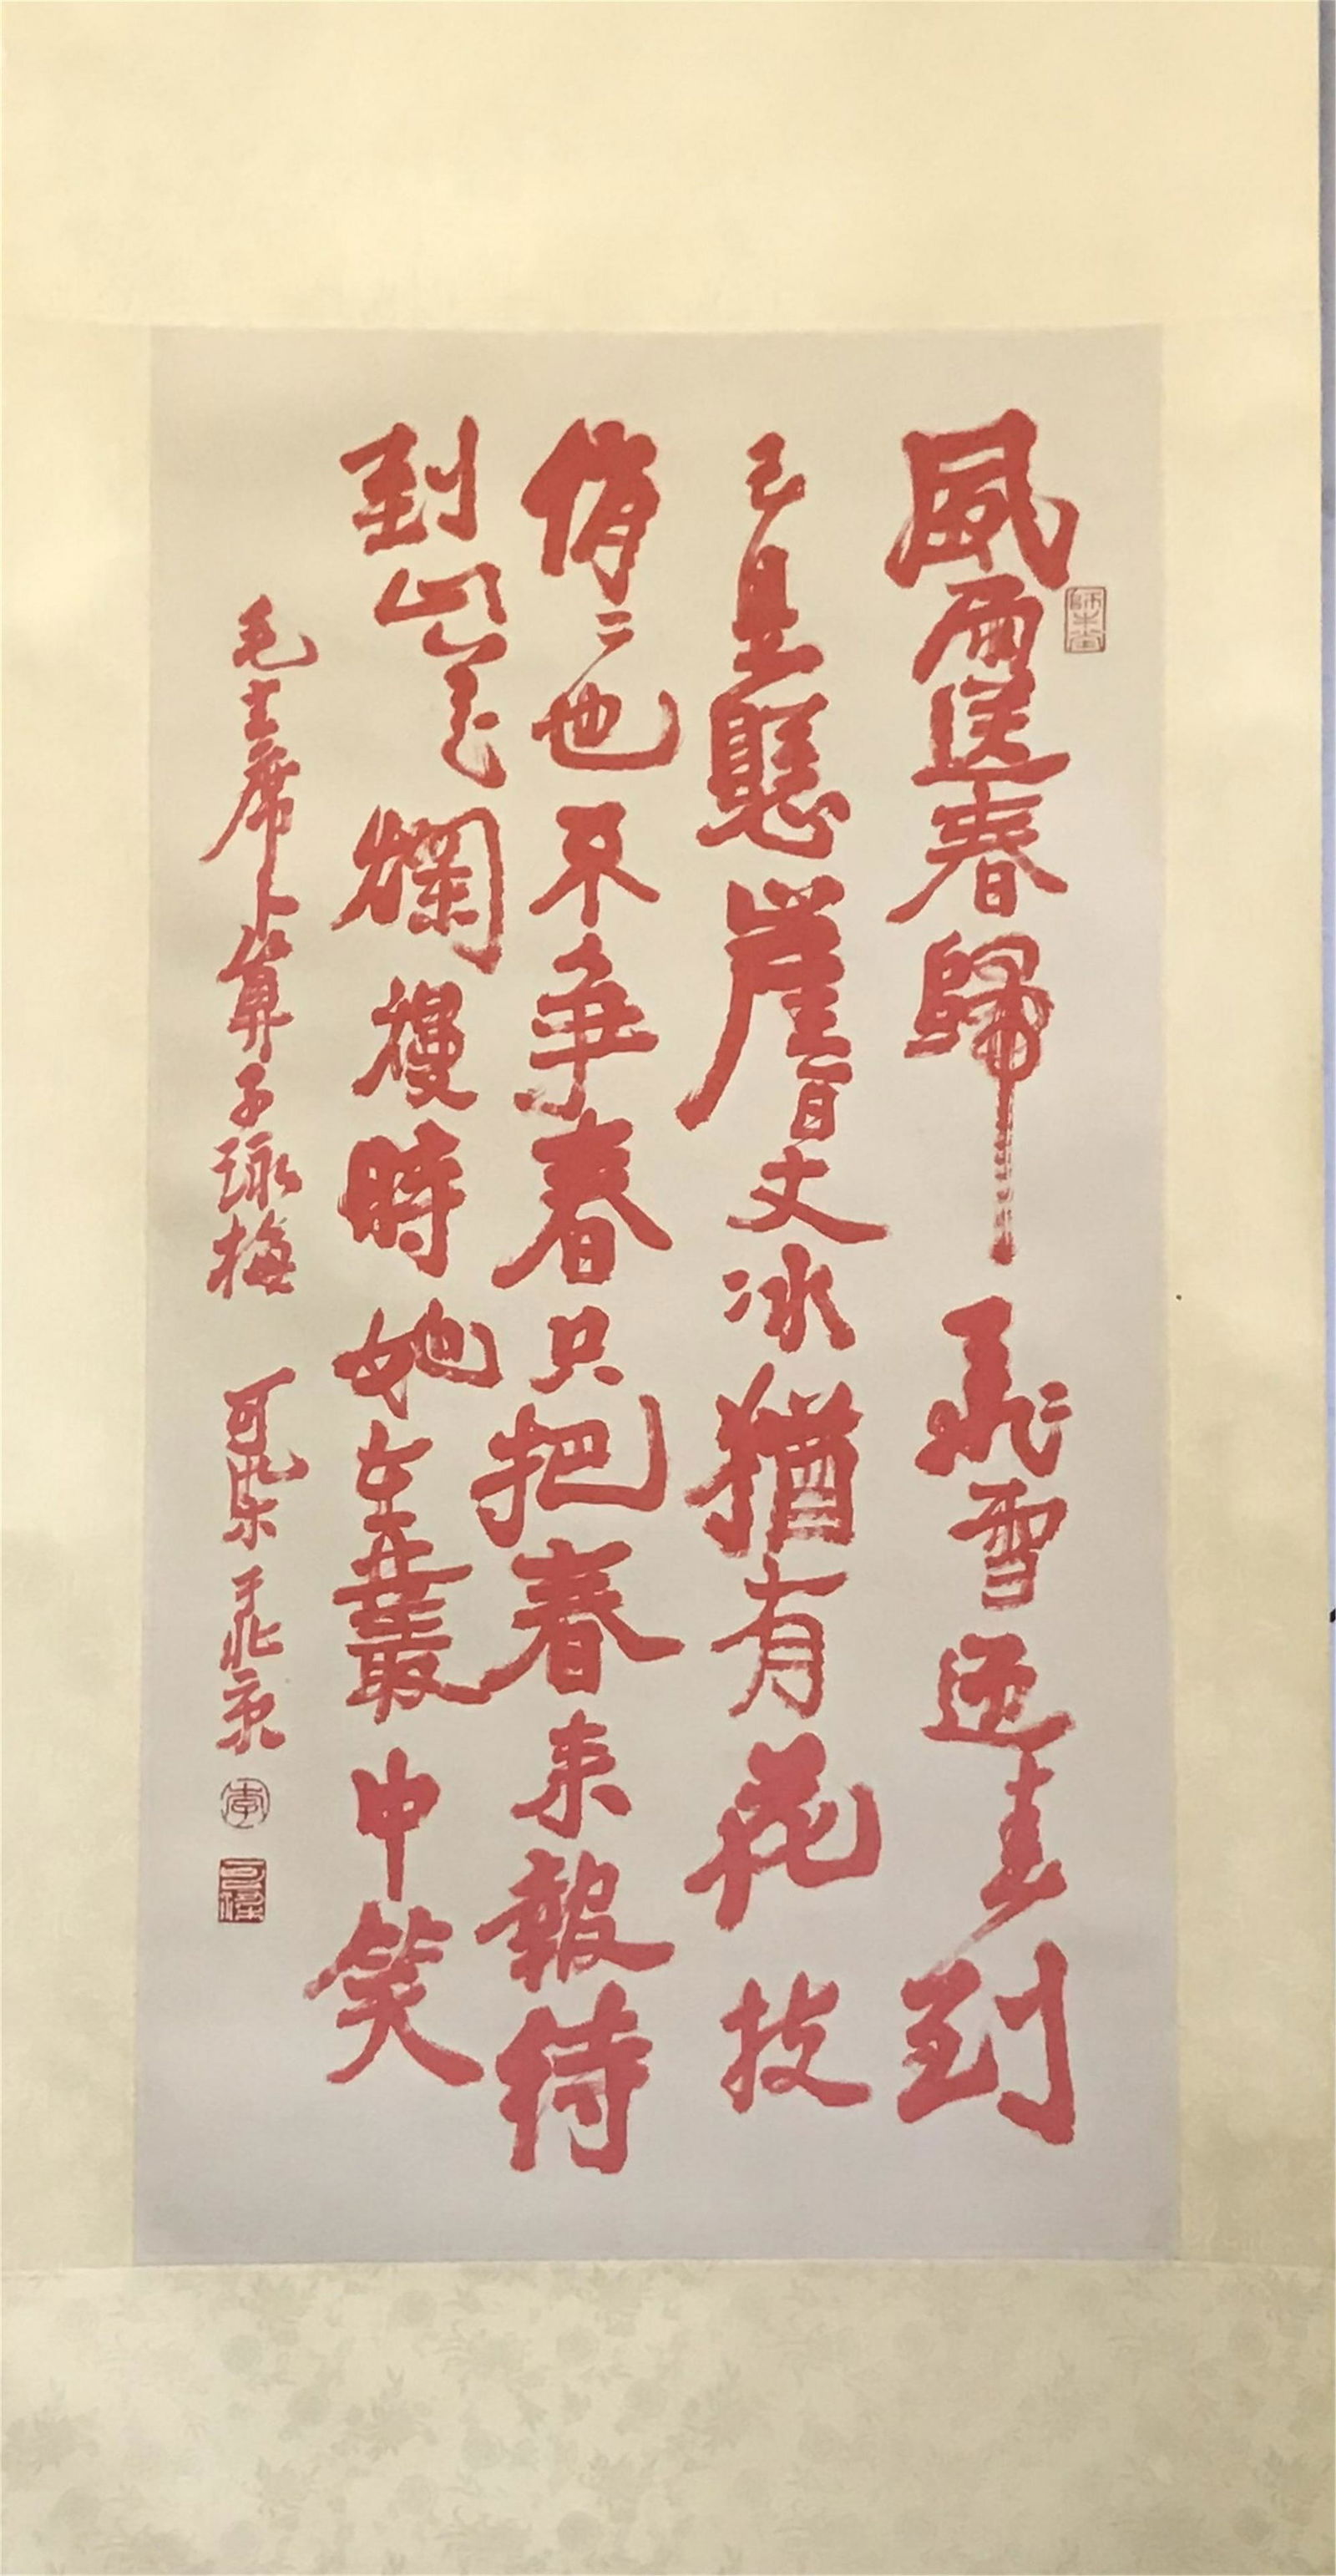 風雨送春歸飛雪迎春到
已是懸崖百丈冰猶有花技
俏〻也不爭春只把春来報待
到山花爛漫時她在叢中笑
毛主席卜算子詠梅 可染于北京
師牛堂
李
可染